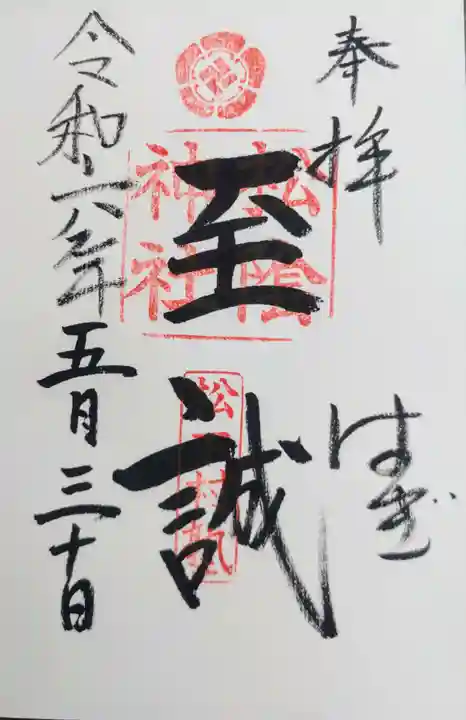 奉拝
はぎ
松陰神社
至誠
松下村塾
令和六年五月三十日